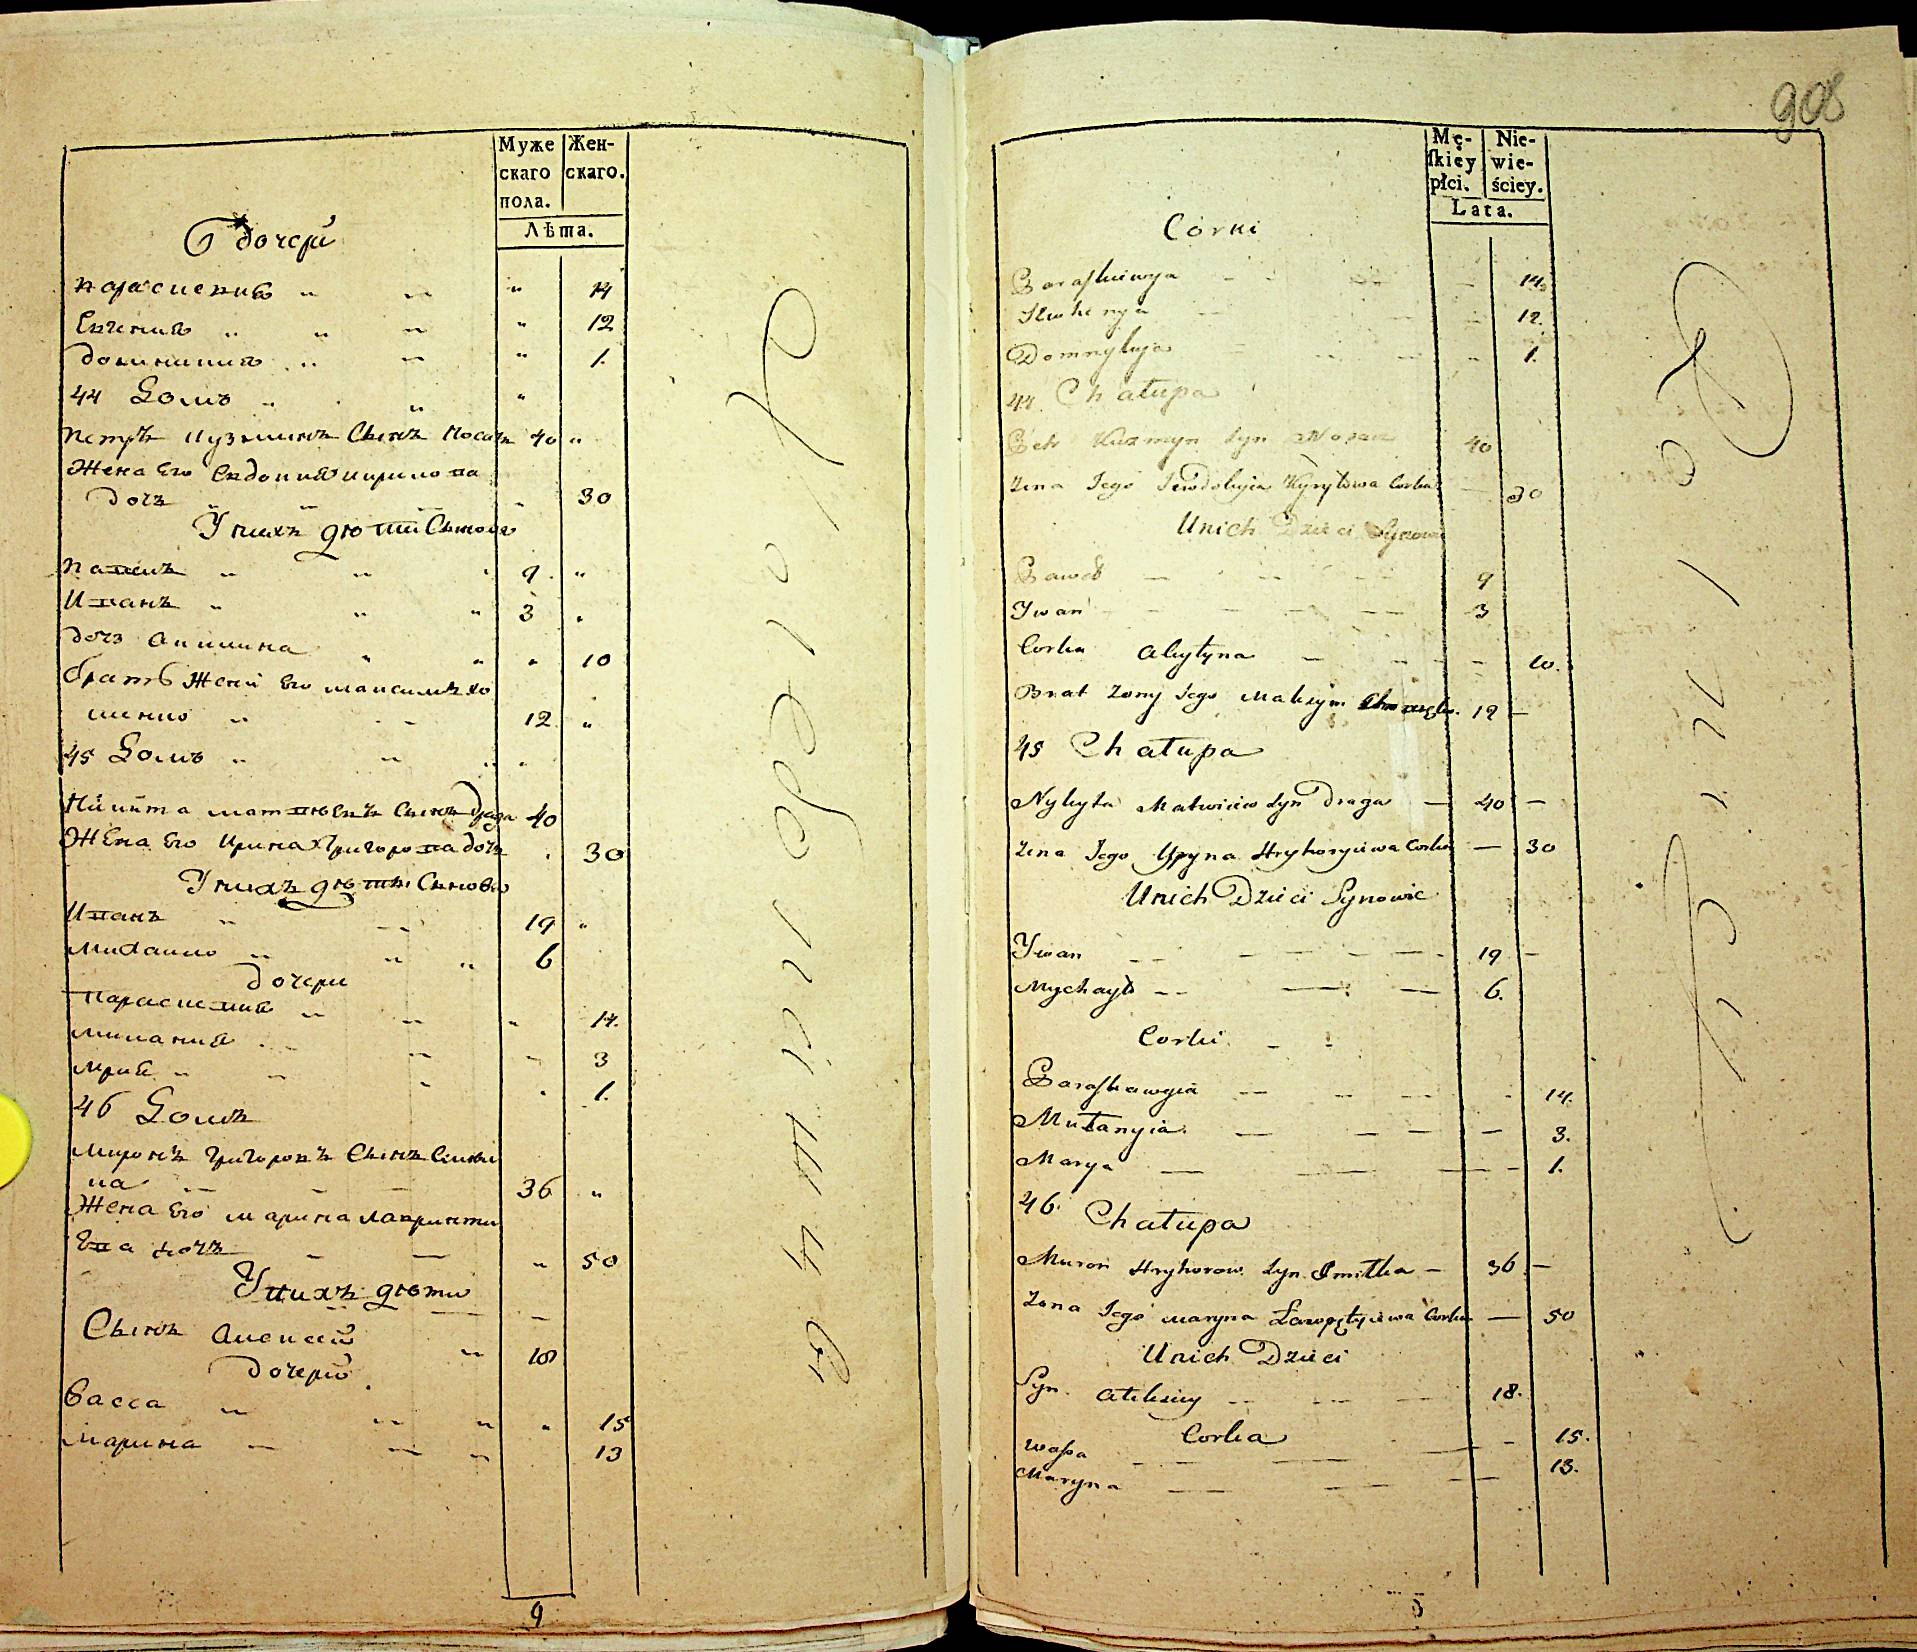 Муже
скаго
пола.
Жен-
скаго.
Лѣта.
дочери
Параскевия " " " 14
Евгения " " " " 12
Домникия " " " 1.
44 Домъ " " "
Петръ Кузминъ Сынъ Носачъ 40 "
Жена Его Евдокия Кирилова
дочь " 30
У нихъ дѣти Синове
Павелъ " " " 9. "
Иванъ " " " 3 "
дочь Акилина " " " 10
братъ Жени Его Максимъ Хо
менко " 12 "
45 Домъ " " " "
Никита Матвѣевъ Сынъ Драга 40
Жена Его Ирина Григорова дочь " 30
У нихъ дѣти Синове
Иванъ " 19 "
Михайло " " " 6
Дочери
Параскевия " " " 14.
Милания " " 3
Мрия " " " 1.
46 Домъ
Миронъ Григоровъ Сынъ
36 "
Жена Его Марина Лавринти
ева дочь " 50
У нихъ дѣти
Сынъ Алексей " 18
Дочери
Васса " " " " 15
Марина 13
9
908
Mę-
ſkiey
płci.
Nie-
wie-
ściey.
Lata.
Córki
Paraſkiwya 14.
Iewhenya 12.
Domnykya 1.
44. Chałupa
Petr Kuzmyn Syn Nosacz 40
Zona Jego Iewdokyia Kyryłowa Corka — 30
Unich Dzieci Synowie
Paweł — 9
Ywan — 3
Corka Akylyna — 10.
Brat Zony Jego Maksym 12 —
45 Chałupa
Nykyta Matwiiew Syn Draga — 40 —
Zona Jego Yryna Hryhoryiewa Corka — 30
Unich Dzieci Synowie
Ywan — 19 —
Mychayło — 6.
Corki
Paraſkawyia — 14.
Mułanyia — 3.
Marya — 1.
46. Chałupa
Muron Hryhorow Syn Smitka — 36 —
Zona Jego Maryna Corka — 50
Unich Dzieci
Syn Aleksiey — 18.
Corka
Waſsa — 15.
Maryna — 13.